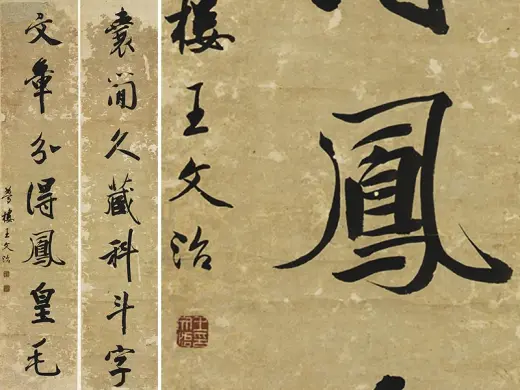 囊簡久藏科斗字
文章分得鳳皇毛
夢樓王文治
鳳
樓王文治